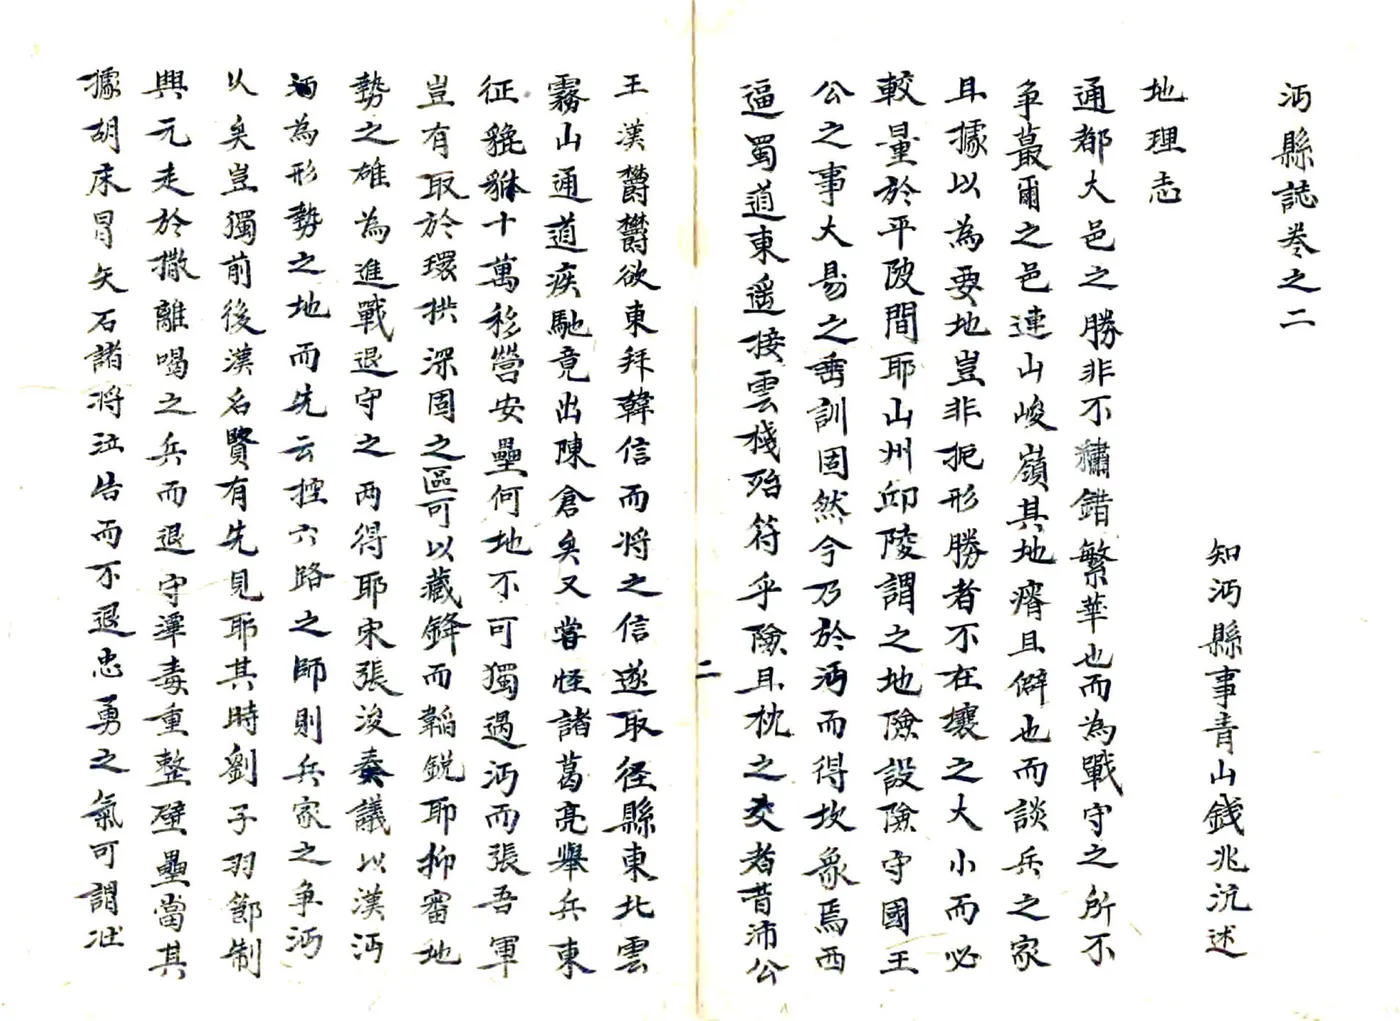 沔縣誌卷之二
知沔縣事青山錢兆沆述
地理志
通都大邑之勝非不繡錯繁華也而為戰守之所不
争蕞爾之邑連山峻嶺其地瘠且僻也而談兵之家
且據以為要地豈非扼形勝者不在壤之大小而必
較量於平陂間耶山州邱陵謂之地險設險守國王
公之事大易之垂訓固然今乃於沔而得坎象焉西
逼蜀道東遥接雲棧殆符乎險且枕之爻者昔沛公
二
王漢欝欝欲東拜韓信而将之信遂取径縣東北雲
霧山通道疾馳竟出陳倉矣又嘗怪諸葛亮舉兵東
征貔貅十萬移營安壘何地不可獨過沔而張吾軍
豈有取於環拱深固之區可以藏鋒而韜鋭耶抑審地
勢之雄為進戰退守之两得耶宋張浚奏議以漢沔
沔為形勢之地而先云控六路之師則兵家之争沔
乆矣豈獨前後漢名賢有先見耶其時劉子羽節制
興元走於撒離喝之兵而退守潭毒重整壁壘當其
據胡床冒矢石諸将泣告而不退忠勇之氣可謂壯